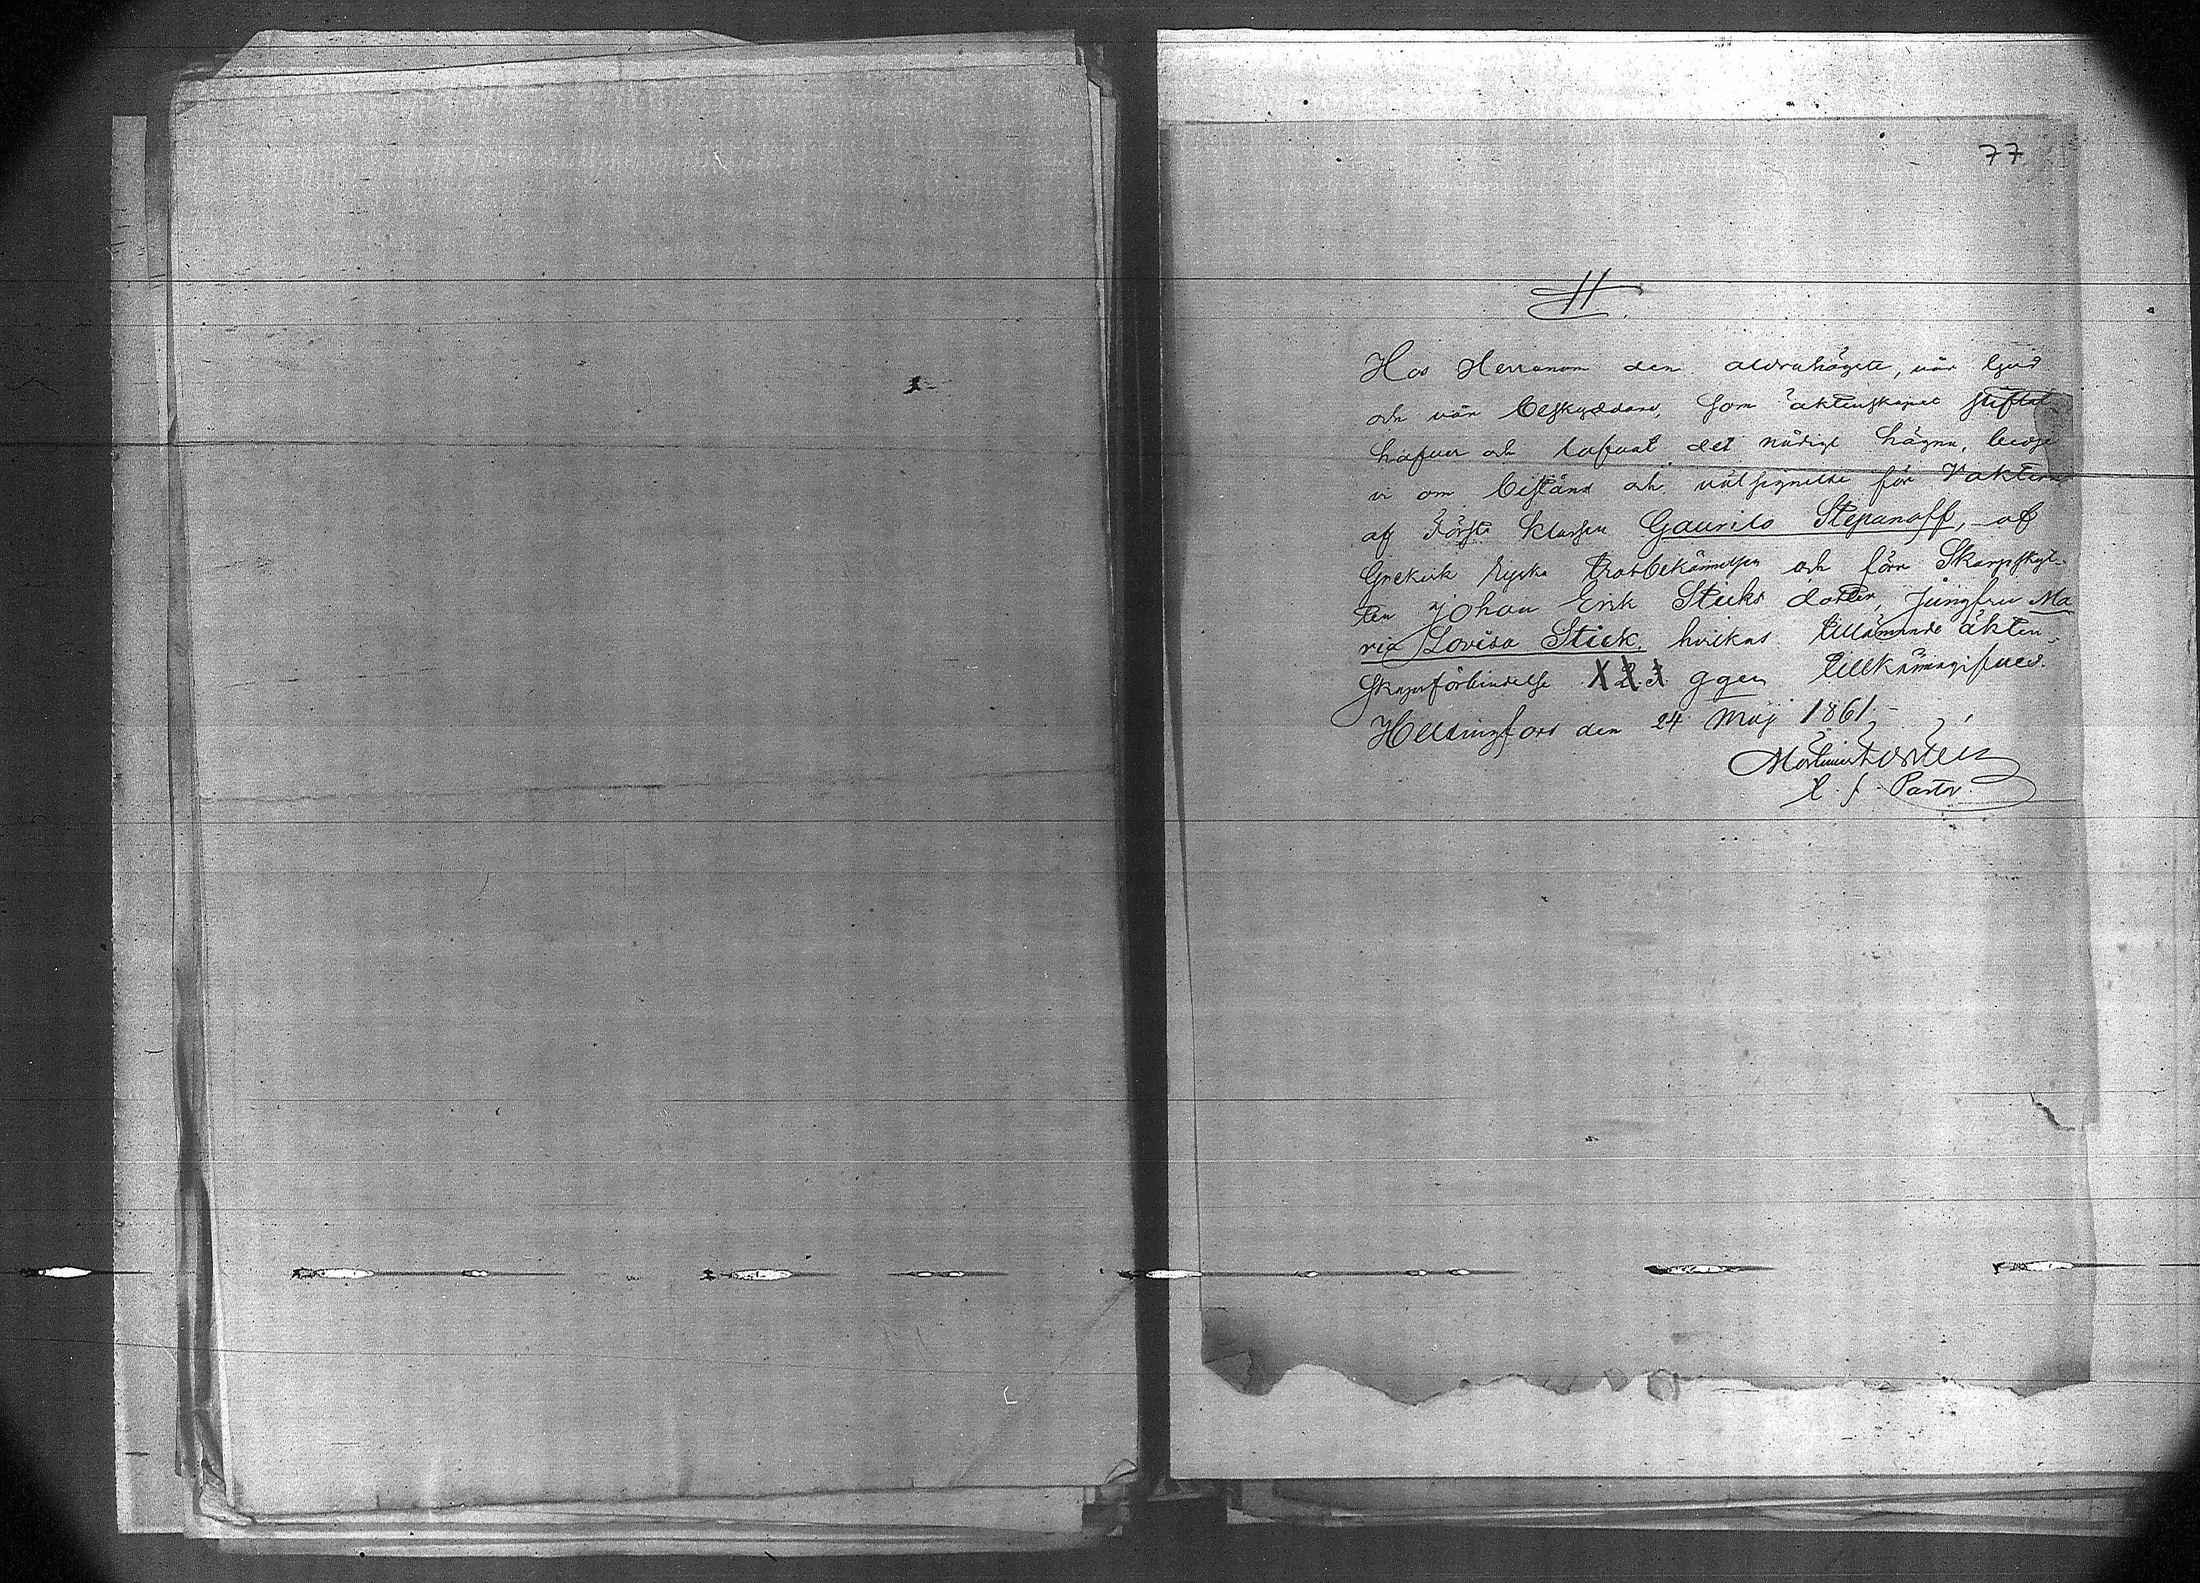 77
H.
Hos Herranom den aldrahögsta, vår ljud
och vår beskyddare, som äktenskapet stiftat
hafver och lofvat det nådigt hägna, bedje
vi om bistånd och välsignelse för Vakten
af Första klassen Gaurilo Stepanoff, af
Grekisk ryska trosbekännelsen och förre Skarpskyt-
ten Johan Erik Sticks dotter, jungfru Ma
ria Lovisa Stick, hvilkas tillämnade äkten-
skapsförbindelse ggen tillkännagifves.
Helsingfors den 24 Maj 1861
Pastor.